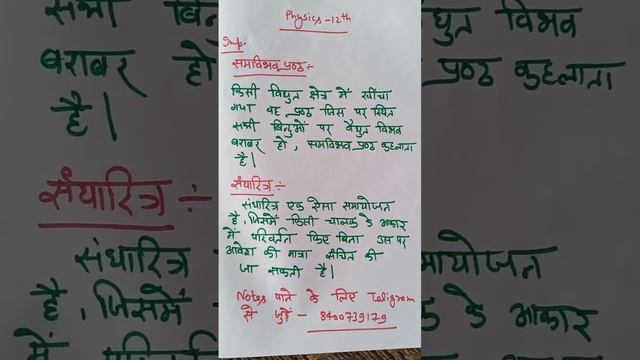 Physics-12th
Imp.
समविभव पृष्ठ ÷
किसी विद्युत क्षेत्र में खींचा
गया वह पृष्ठ जिस पर स्थित
सभी बिन्दुओं पर वैद्युत विभव
बराबर हो, समविभव पृष्ठ कहलाता
है।
संधारित्र ÷
संधारित्र एक ऐसा समायोजन
है, जिसमें किसी चालक के आकार
में परिवर्तन किए बिना उस पर
आवेश की मात्रा संचित की
जा सकती है।
Notes पाने के लिए Teligram
से जुड़ें - 8400739179